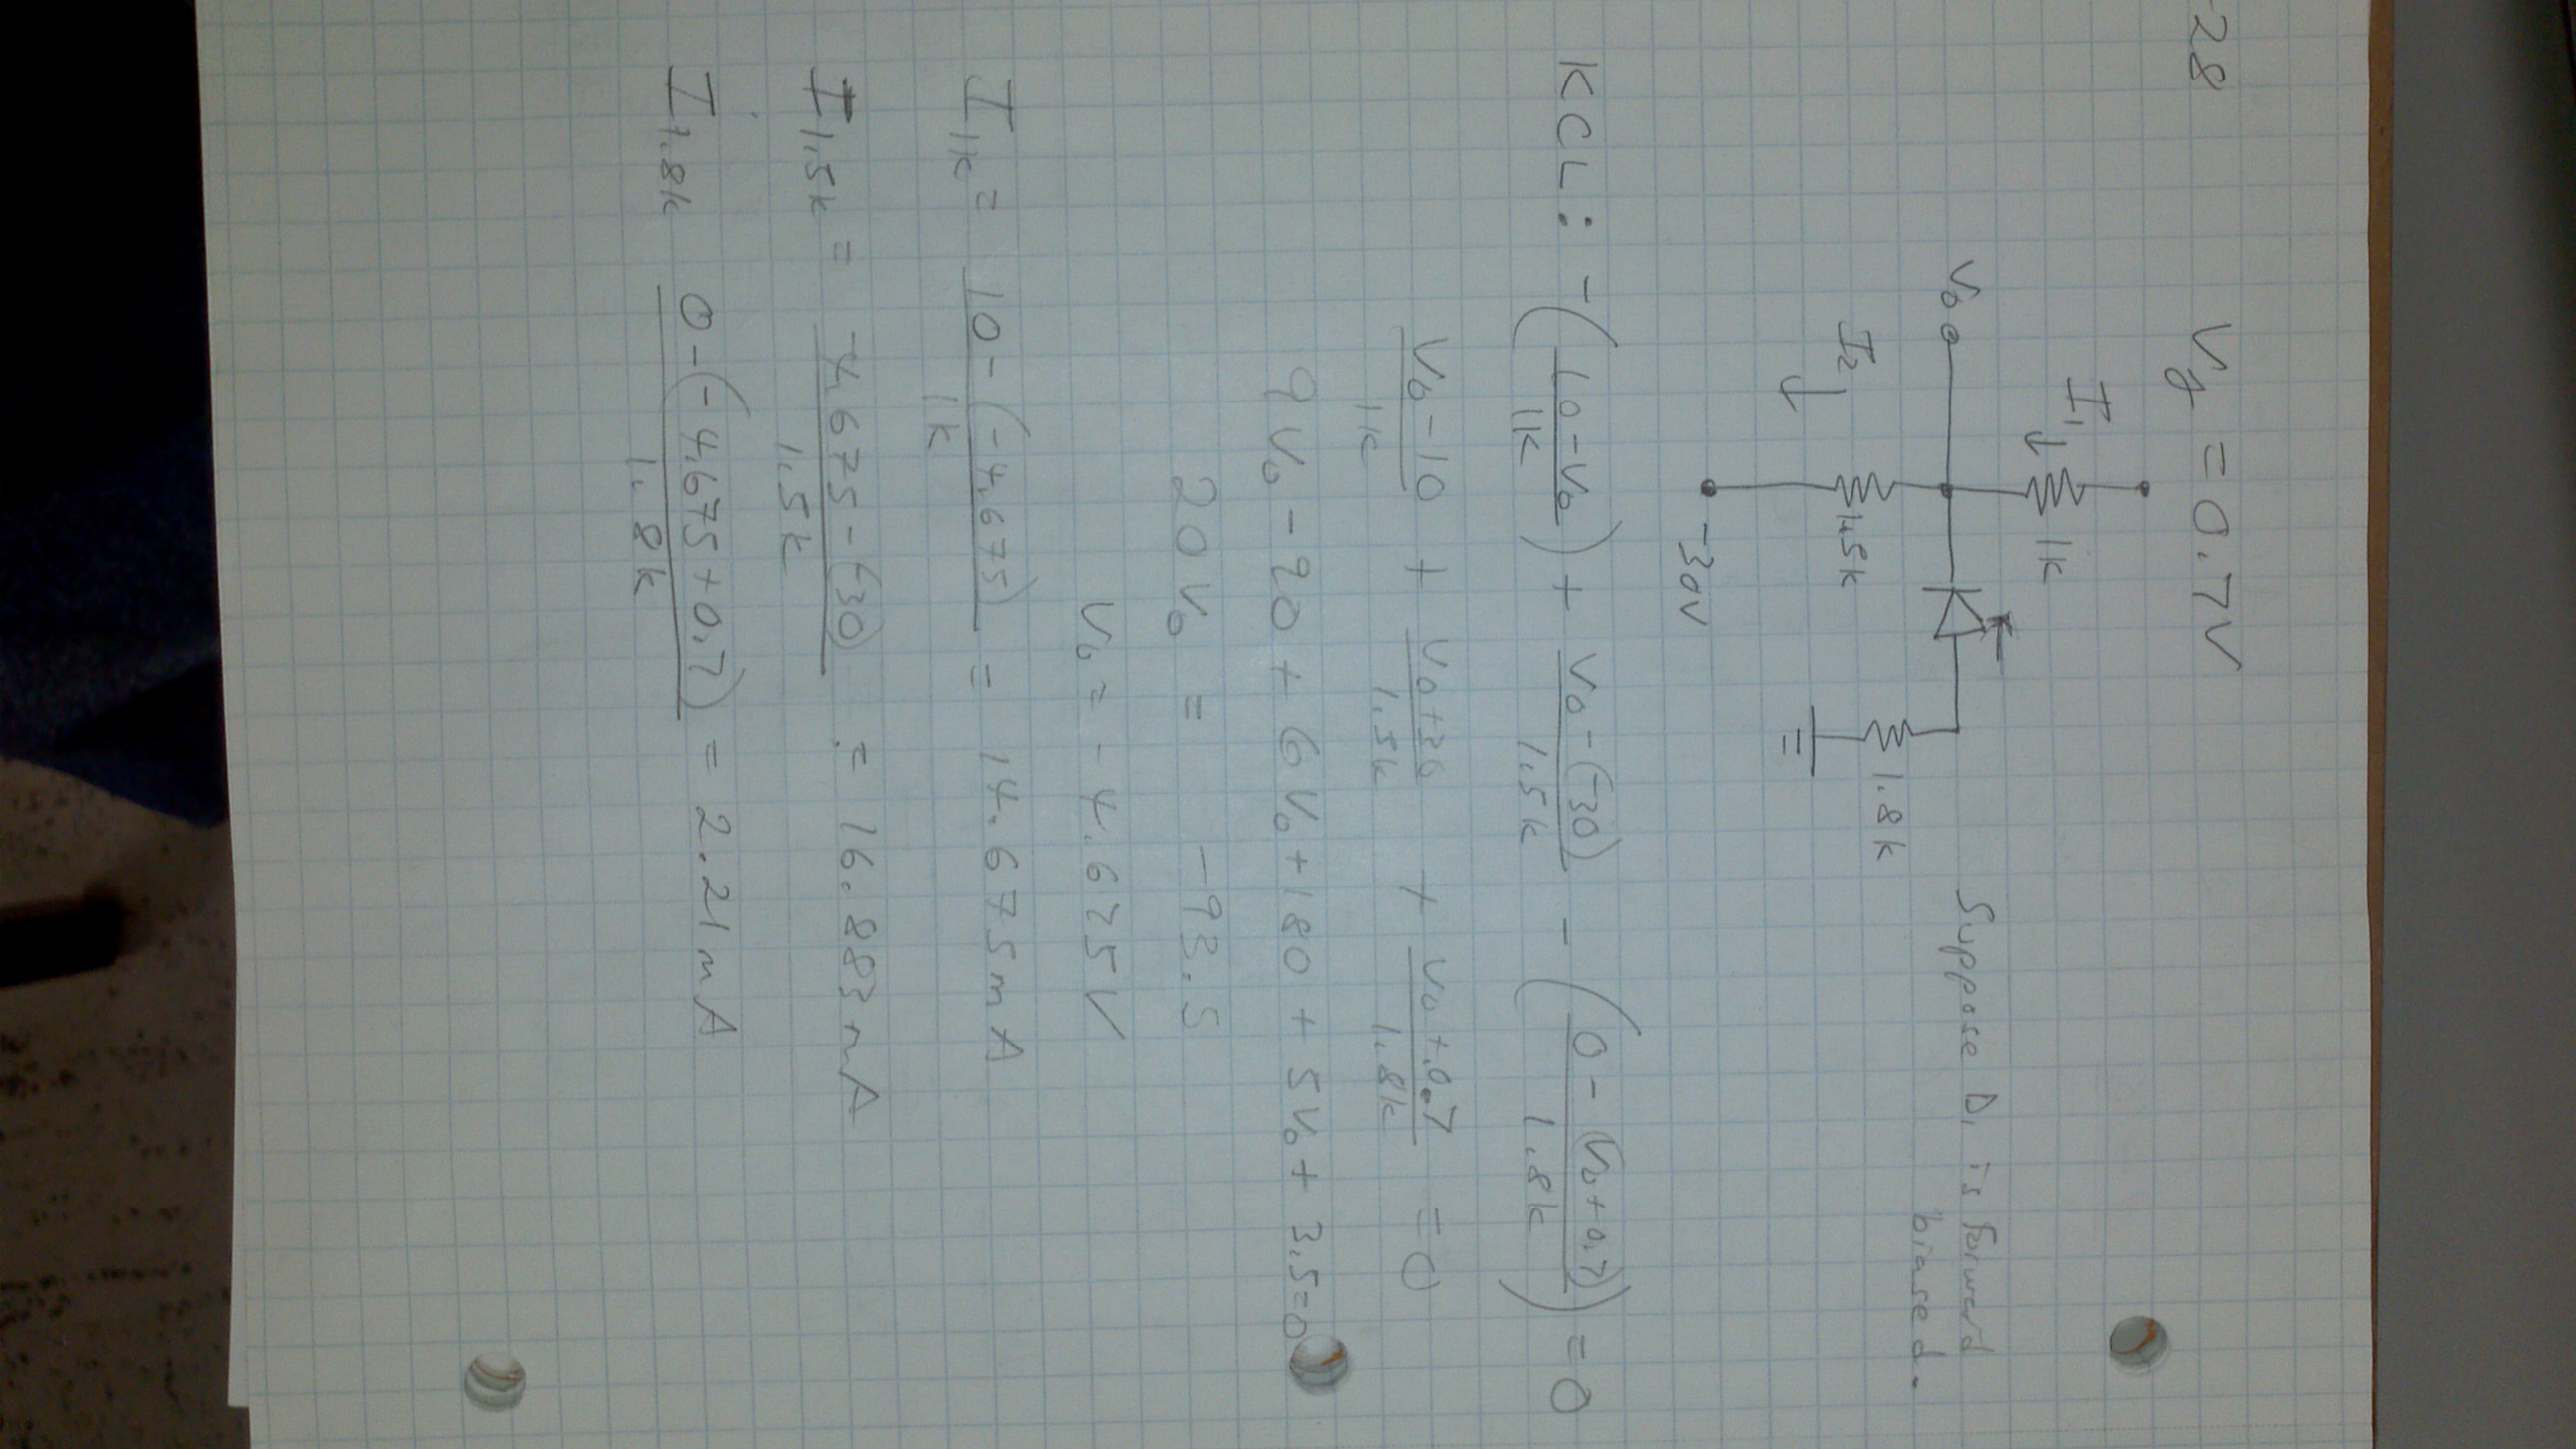 -28 Vd = 0.7V
I1 1k
V0
I2 1.5k 1.8k
-30V
Suppose D1 is forward
biased.
KCL: -((10-V0)/1k) + (V0-(-30))/1.5k - ((0-(V0+0.7))/1.8k) = 0
(V0-10)/1k + (V0+30)/1.5k + (V0+0.7)/1.8k = 0
9V0-90 + 6V0+180 + 5V0+ 3.5=0
20V0 = -93.5
V0 = -4.675V
I1k = (10-(-4.675))/1k = 14.675mA
I1.5k = (-4.675-(-30))/1.5k = 16.883mA
I1.8k (0-(-4.675+0.7))/1.8k = 2.21mA